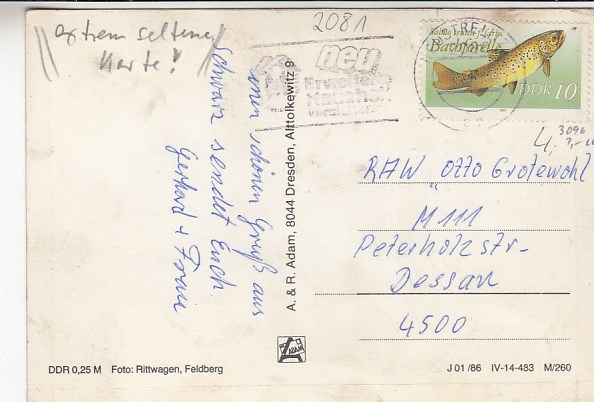 extrem seltene
Karte!
2081
neu
Erweiterte
Haushalt
versicherung
Salmo trutta f. fario
Bachforelle
DDR 10
3096
Einen schönen Gruß aus
Schwarz sendet Euch
Gerhard + Frau
A. & R. Adam, 8044 Dresden, Alttolkewitz 9
RAW „Otto Grotewohl
M 111
Peterholzstr-
Dessau
4500
ADAM
DDR 0,25 M Foto: Rittwagen, Feldberg
J 01/86 IV-14-483 M/260